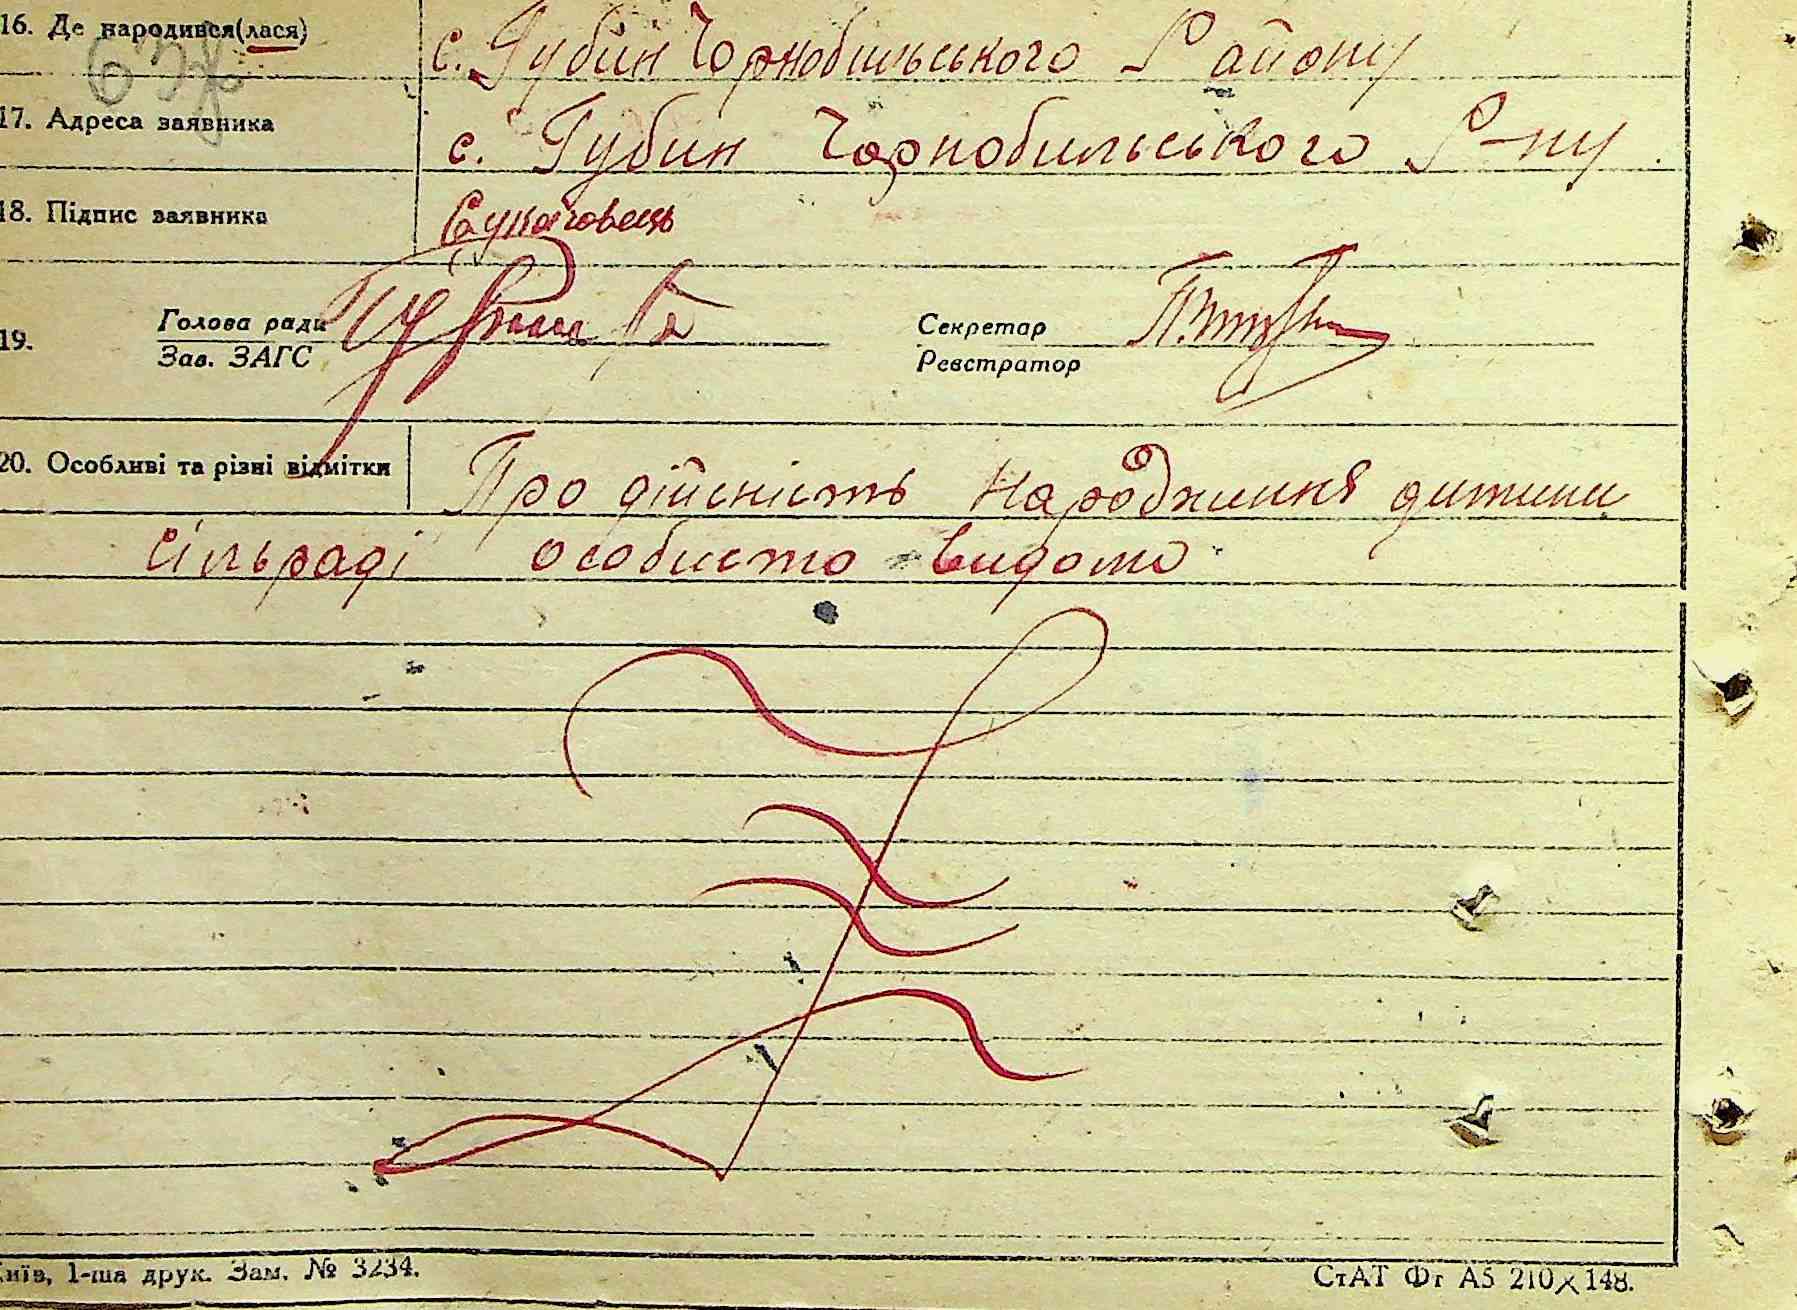 16. Де народився(лася) с. Губин Чорнобильського Району
17. Адреса заявника с. Губин Чорнобильського Р-ну.
18. Підпис заявника
19. Голова ради Секретар
Зав. ЗАГС Реєстратор
20. Особливі та різні відмітки Про дійсність народження дитини
сільраді особисто видомо
Київ, 1-ша друк. Зам. № 3234. СтАТ Фт А5 210×148.